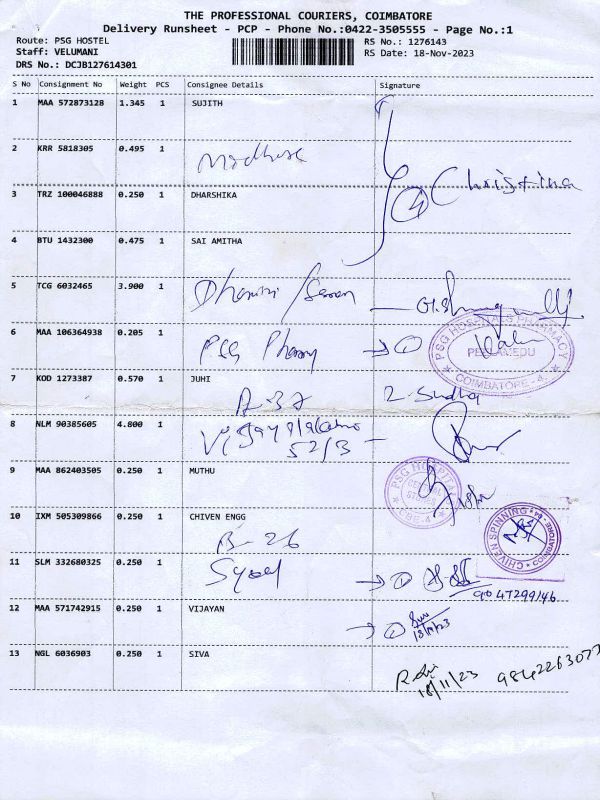 THE PROFESSIONAL COURIERS, COIMBATORE
Delivery Runsheet - PCP - Phone No.:0422-3505555 - Page No.:1
Route: PSG HOSTEL
Staff: VELUMANI
DRS No.: DCJB127614301
RS No.: 1276143
RS Date: 18-Nov-2023
S No Consignment No Weight PCS Consignee Details Signature
1 MAA 572873128 1.345 1 SUJITH
2 KRR 5818305 0.495 1
4 Christina
3 TRZ 100046888 0.250 1 DHARSHIKA
4 BTU 1432300 0.475 1 SAI AMITHA
5 TCG 6032465 3.900 1
6 MAA 106364938 0.205 1 PSG 1
PSG HOSPITALS PHARMACY
PEELAMEDU
COIMBATORE - 4
7 KOD 1273387 0.570 1 JUHI
8 NLM 90385605 4.800 1
52/3
9 MAA 862403505 0.250 1 MUTHU
PSG HOSPITAL
GENERAL STORES
CBE-4
10 IXM 505309866 0.250 1 CHIVEN ENGG
B-26
CHIVEN SPINNING
COIMBATORE
11 SLM 332680325 0.250 1 1
9047299146
12 MAA 571742915 0.250 1 VIJAYAN
18/11/23
13 NGL 6036903 0.250 1 SIVA
18/11/23